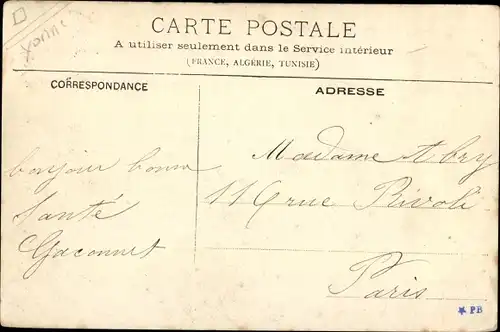 Yonne
CARTE POSTALE
A utiliser seulement dans le Service intérieur
(FRANCE, ALGÉRIE, TUNISIE)
CORRESPONDANCE
ADRESSE
bonjour bonne
Santé
Gaconnet
Madame Abry
119 rue Rivoli
Paris
★ PB